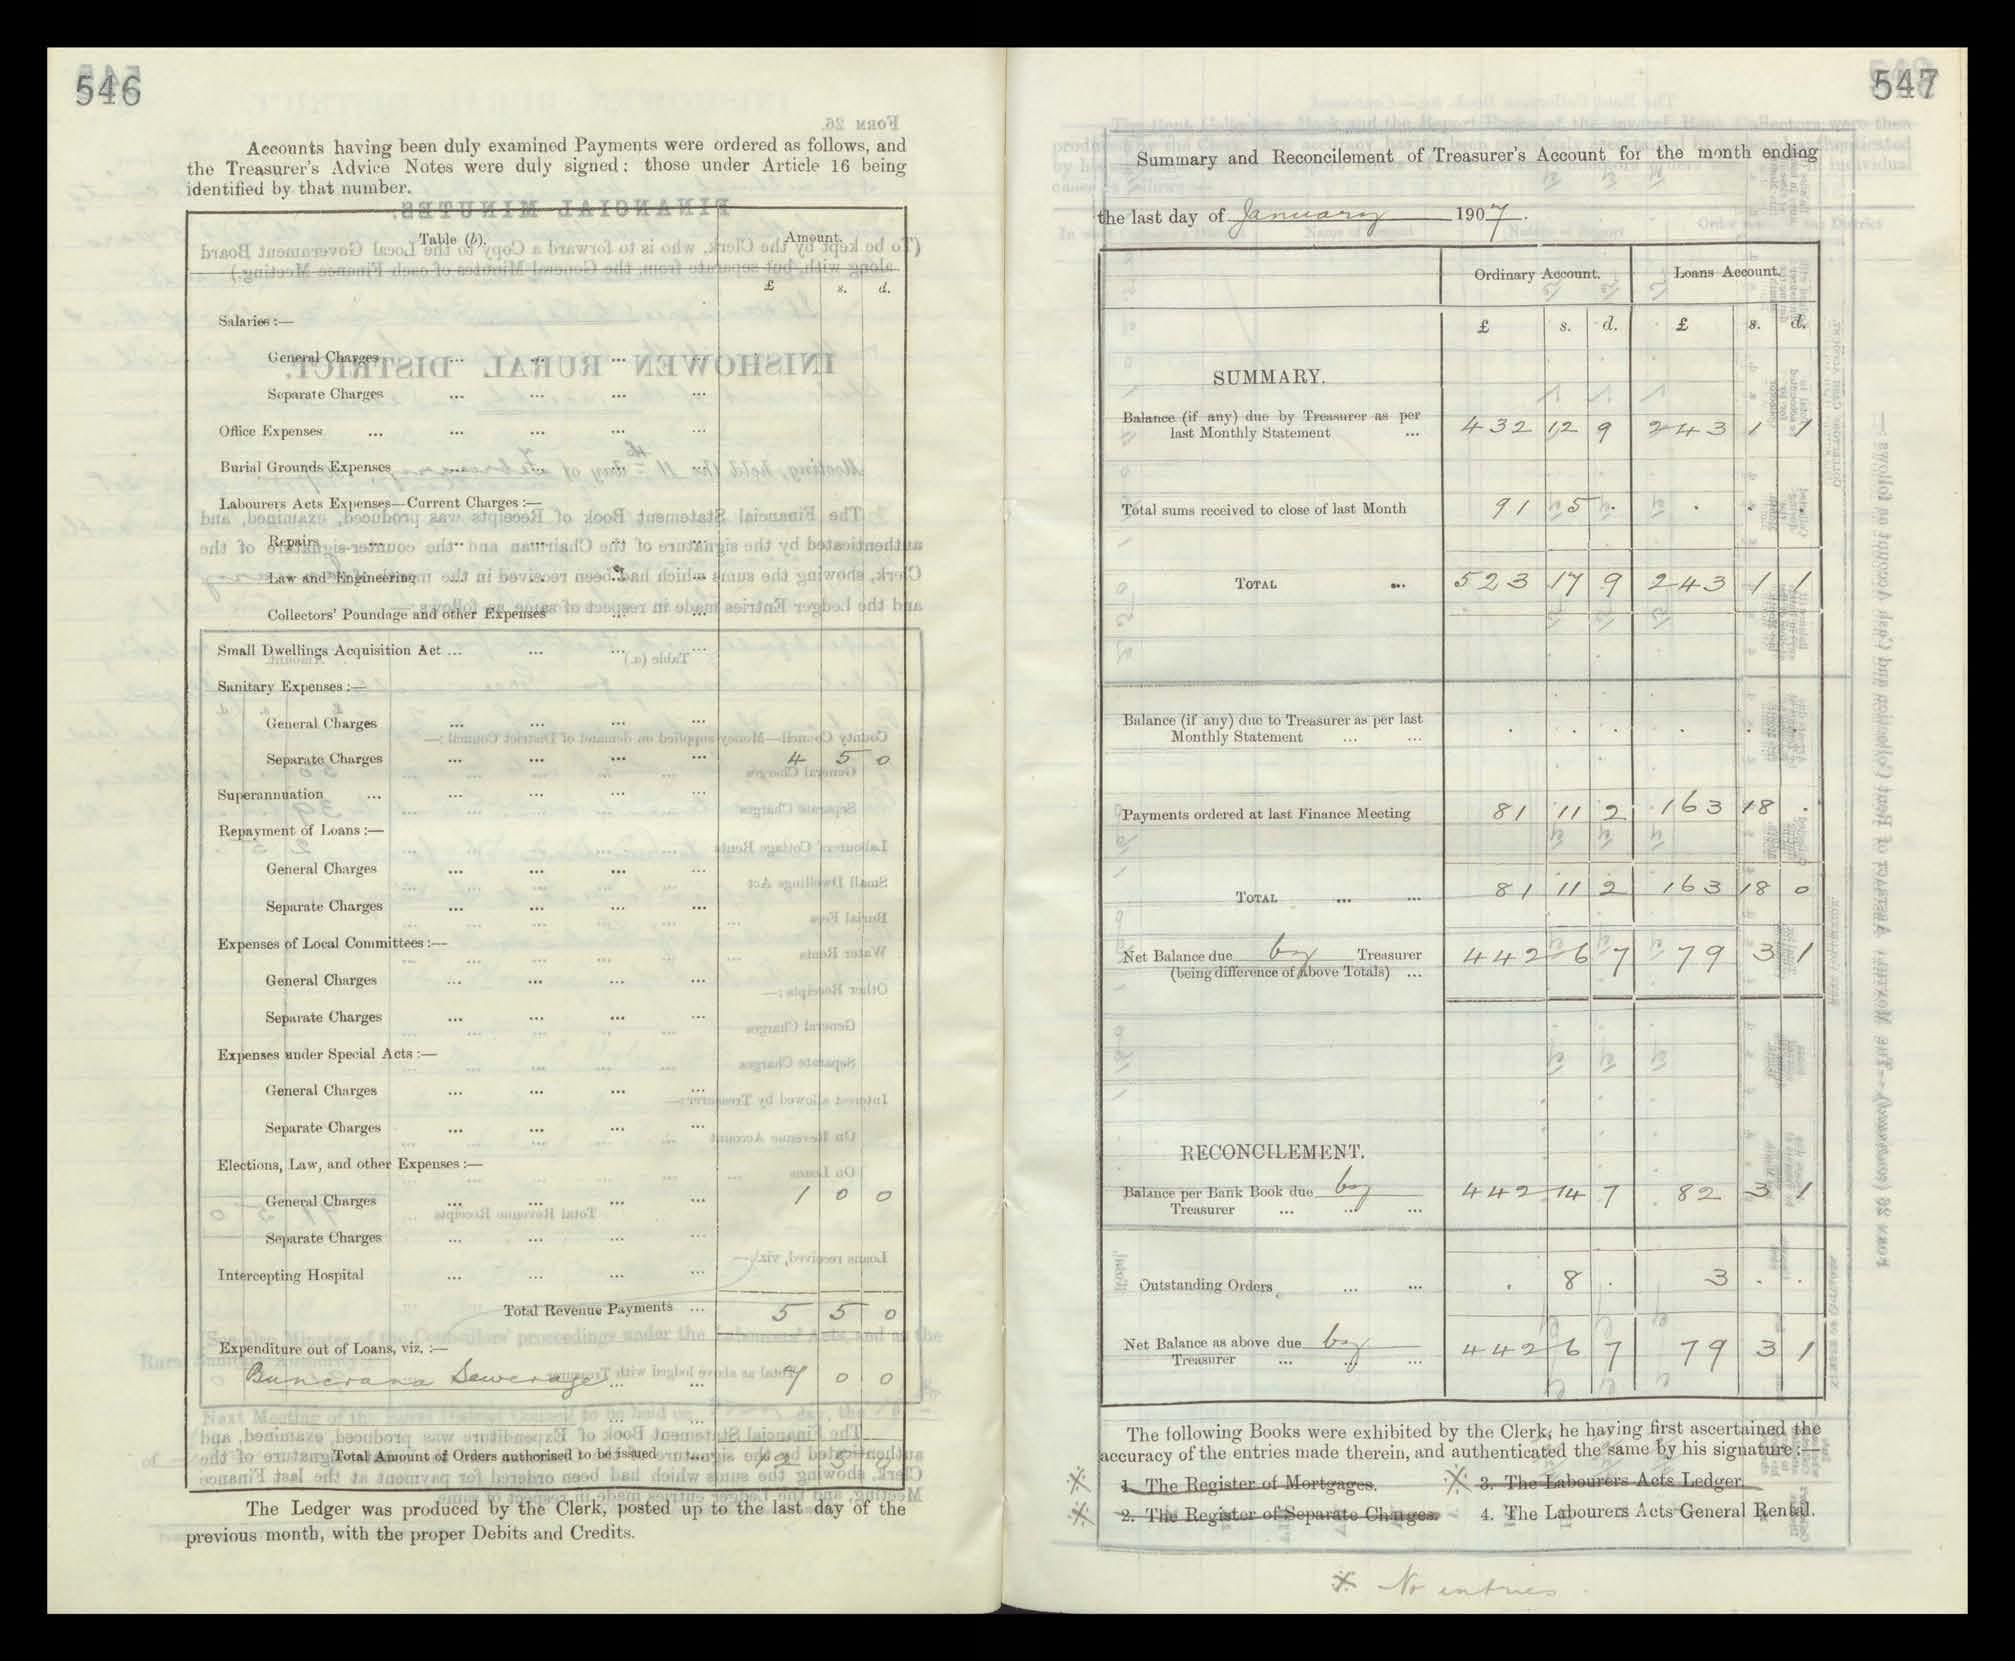 546
Accounts having been duly examined Payments were ordered as follows, and
the Treasurer's Advice Notes were duly signed: those under Article 16 being
identified by that number.
Table (b). Amount.
£ s. d.
Salaries:—
General Charges ... ... ... ...
Separate Charges ... ... ... ...
Office Expenses ... ... ... ... ...
Burial Grounds Expenses ... ... ... ...
Labourers Acts Expenses—Current Charges:—
Repairs ... ... ... ... ...
Law and Engineering ... ... ... ...
Collectors' Poundage and other Expenses ... ...
Small Dwellings Acquisition Act ... ... ... ...
Sanitary Expenses:—
General Charges ... ... ... ...
Separate Charges ... ... ... ... 4 5 0
Superannuation ... ... ... ... ...
Repayment of Loans:—
General Charges ... ... ... ...
Separate Charges ... ... ... ...
Expenses of Local Committees:—
General Charges ... ... ... ...
Separate Charges ... ... ... ...
Expenses under Special Acts:—
General Charges ... ... ... ...
Separate Charges ... ... ... ...
Elections, Law, and other Expenses:—
General Charges ... ... ... ... 1 0 0
Separate Charges ... ... ... ...
Intercepting Hospital ... ... ... ...
Total Revenue Payments ... 5 5 0
Expenditure out of Loans, viz.:—
Buncrana Sewerage ... ... 7 0 0
... ...
Total Amount of Orders authorised to be issued ... 12 5 0
The Ledger was produced by the Clerk, posted up to the last day of the
previous month, with the proper Debits and Credits.
547
Summary and Reconcilement of Treasurer's Account for the month ending
the last day of January 1907.
Ordinary Account. Loans Account.
£ s. d. £ s. d.
SUMMARY.
Balance (if any) due by Treasurer as per
last Monthly Statement ... 432 12 9 243 1 1
Total sums received to close of last Month 91 5 . . . .
TOTAL ... 523 17 9 243 1 1
Balance (if any) due to Treasurer as per last
Monthly Statement ... ... . . . . . .
Payments ordered at last Finance Meeting 81 11 2 163 18 .
TOTAL ... ... 81 11 2 163 18 0
Net Balance due by Treasurer 442 6 7 79 3 1
(being difference of above Totals) ...
RECONCILEMENT.
Balance per Bank Book due by 442 14 7 82 3 1
Treasurer ... ... ...
Outstanding Orders ... ... . 8 . 3 . .
Net Balance as above due by 442 6 7 79 3 1
Treasurer ... ... ...
The following Books were exhibited by the Clerk, he having first ascertained the
accuracy of the entries made therein, and authenticated the same by his signature:—
※ 1. The Register of Mortgages. ※ 3. The Labourers Acts Ledger.
※ 2. The Register of Separate Charges. 4. The Labourers Acts General Rental.
※ No entries